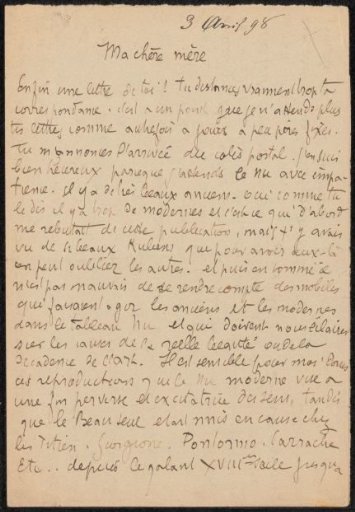 3 Avril 98
Ma chère mère
Enfin une lettre de toi! tu distances vraiment trop ta
correspondance. c'est à un point que je n'attends plus
tes lettres comme autrefois à jours à peu près fixes.
Tu m'annonces l'arrivée du colis postal. J'en suis
bien heureux parceque j'attends le Nu avec impa-
tience. il y a de très beaux anciens. oui comme tu
le dis il y a trop de modernes et c'est ce qui d'abord
me rebutait de cette publication, mais j'y avais
vu de si beaux Rubens que pour avoir ceux-là
on peut oublier les autres. et puis en somme ce
n'est pas mauvais de se rendre compte des mobiles
qui faisaient agir les anciens et les modernes
dans le tableau Nu et qui doivent nous éclairer
sur les causes de la réelle beauté ou de la
décadence de l'art. Il est sensible pour moi dans
ces reproductions que le Nu moderne vise à
une fin perverse et excitatrice des sens, tandis
que le Beau seul était mis en cause chez
les Titien. Giorgione. Pontormo. Carrache
Etc... depuis le galant XVIIIme siècle jusqu